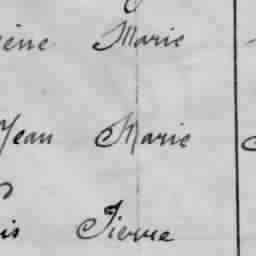 ène Marie
Jean Marie
is Pierre